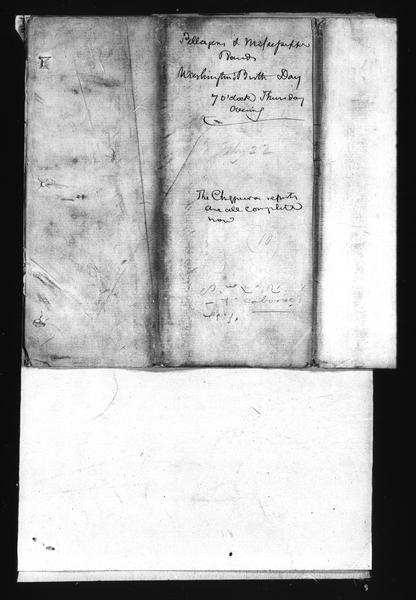 Pillagers & Mississippi
Bands
Washington's Birth Day
7 o'clock Thursday
evening
22
The Chippewa reports
are all complete
now